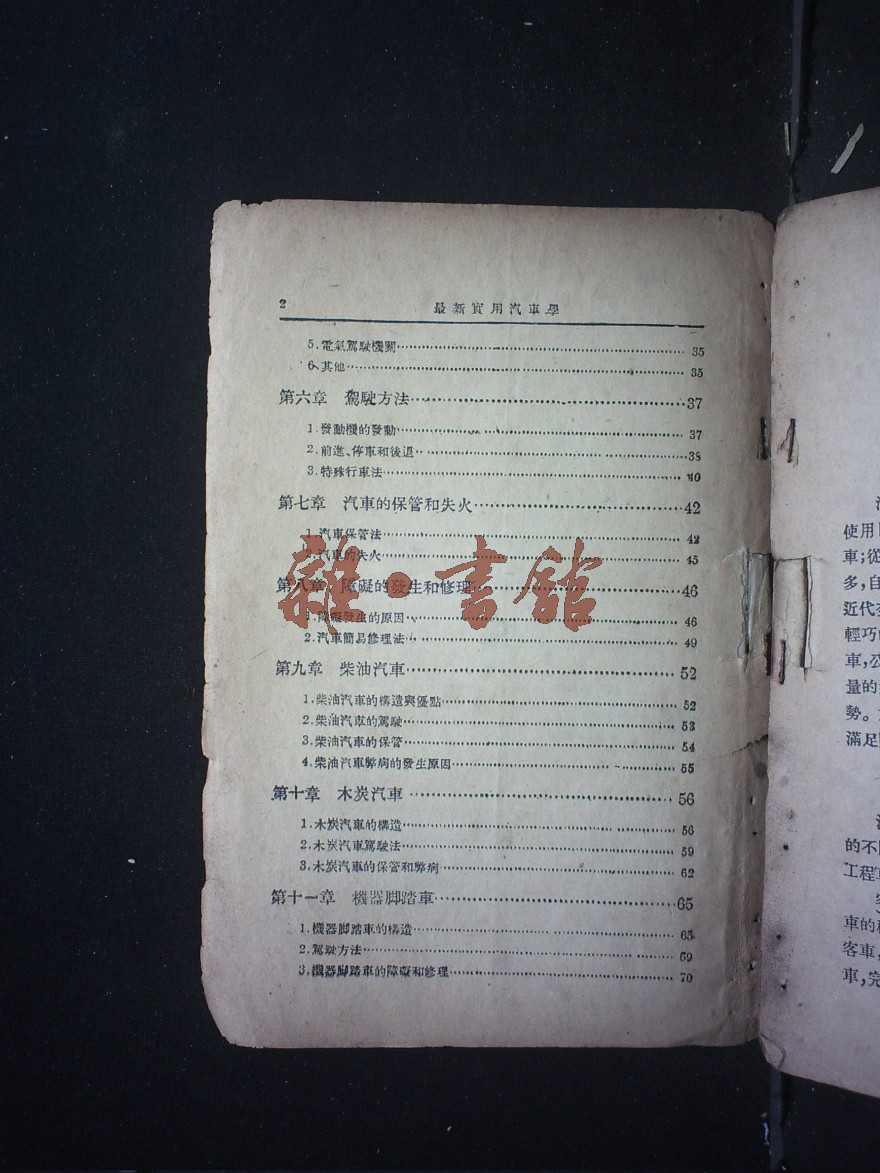 2
最新實用汽車學
5.電氣駕駛機關 35
6、其他 35
第六章 駕駛方法 37
1.發動機的發動 37
2.前進、停車和後退 38
3.特殊行車法 40
第七章 汽車的保管和失火 42
1.汽車保管法 42
2.汽車的失火 45
第八章 障礙的發生和修理 46
1.障礙發生的原因 46
2.汽車簡易修理法 49
第九章 柴油汽車 52
1.柴油汽車的構造與優點 52
2.柴油汽車的駕駛 53
3.柴油汽車的保管 54
4.柴油汽車弊病的發生原因 55
第十章 木炭汽車 56
1.木炭汽車的構造 56
2.木炭汽車駕駛法 59
3.木炭汽車的保管和弊病 62
第十一章 機器脚踏車 65
1.機器脚踏車的構造 65
2.駕駛方法 69
3.機器脚踏車的障礙和修理 70
雜·書館
使用
車;從
多,自
近代
輕巧
車,公
量的
勢。
滿足
的不
工程
車的
客車,
車,完